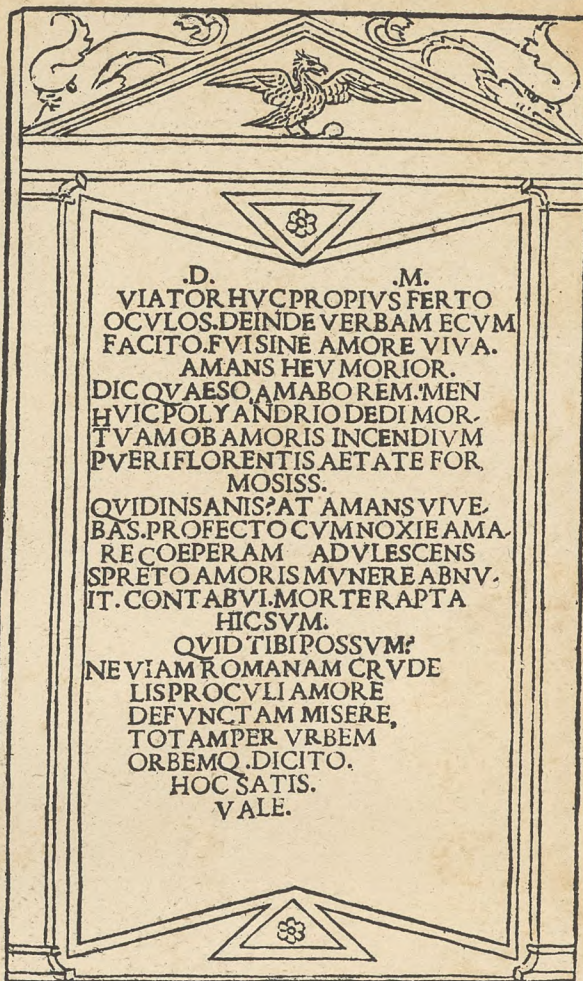 .D. .M.
VIATOR HVC PROPIVS FERTO
OCVLOS.DEINDE VERBAM ECVM
FACITO.FVI SINE AMORE VIVA.
AMANS HEV MORIOR.
DIC QVAESO, AMABO REM.'MEN
HVIC POLYANDRIO DEDI MOR-
TVAM OB AMORIS INCENDIVM
PVERI FLORENTIS AETATE FOR
MOSISS.
QVID INSANIS? AT AMANS VIVE-
BAS.PROFECTO CVM NOXIE AMA-
RE COEPERAM ADVLESCENS
SPRETO AMORIS MVNERE ABNV-
IT.CONTABVI.MORTE RAPTA
HIC SVM.
QVID TIBI POSSVM?
NE VIAM ROMANAM CRVDE
LIS PROCVLI AMORE
DEFVNCTAM MISERE,
TOTAM PER VRBEM
ORBEMQ.DICITO.
HOC SATIS.
VALE.